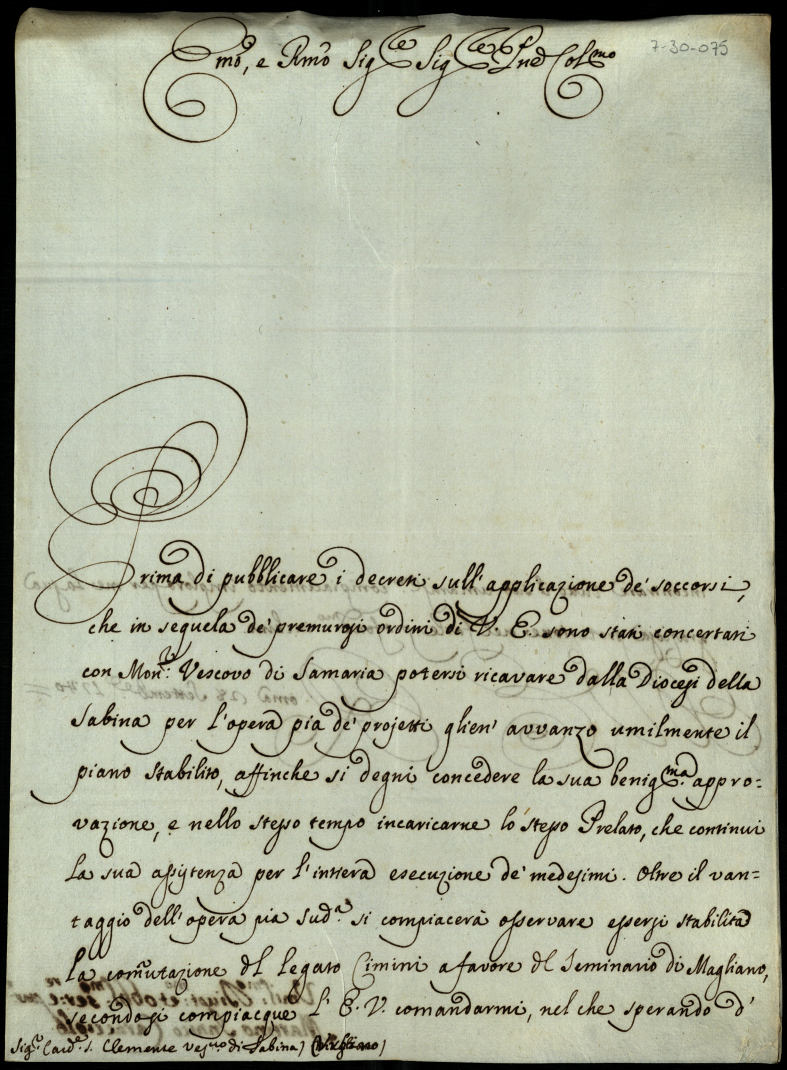 Emo, e Rmo Sigre Sigre Pnẽ Colmo
7-30-075
Prima di pubblicare i decreti sull'applicazione de' soccorsi,
che in sequela de' premurosi ordini di V. E. sono stati concertati
con Monr. Vescovo di Samaria potersi ricavare dalla Diocesi della
Sabina per l'opera pia de' projetti glien' avvanzo umilmente il
piano stabilito, affinche si degni concedere la sua benigma. appro=
vazione, e nello stesso tempo incaricarne lo stesso Prelato, che continui
la sua assistenza per l'intiera esecuzione de' medesimi. Oltre il van=
taggio dell'opera pia suda. si compiacerà osservare essersi stabilita
la com̃utazione del legato Cimini a favore del Seminario di Magliano,
secondo si compiacque l'E. V. comandarmi, nel che sperando d'
Sigr. Carde. S. Clemente Vescvo di Sabina)